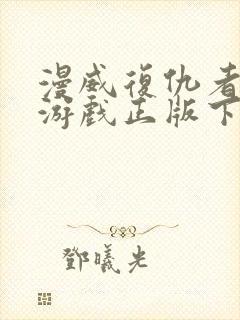 漫威復仇者
游戲正版下
鄧曦光